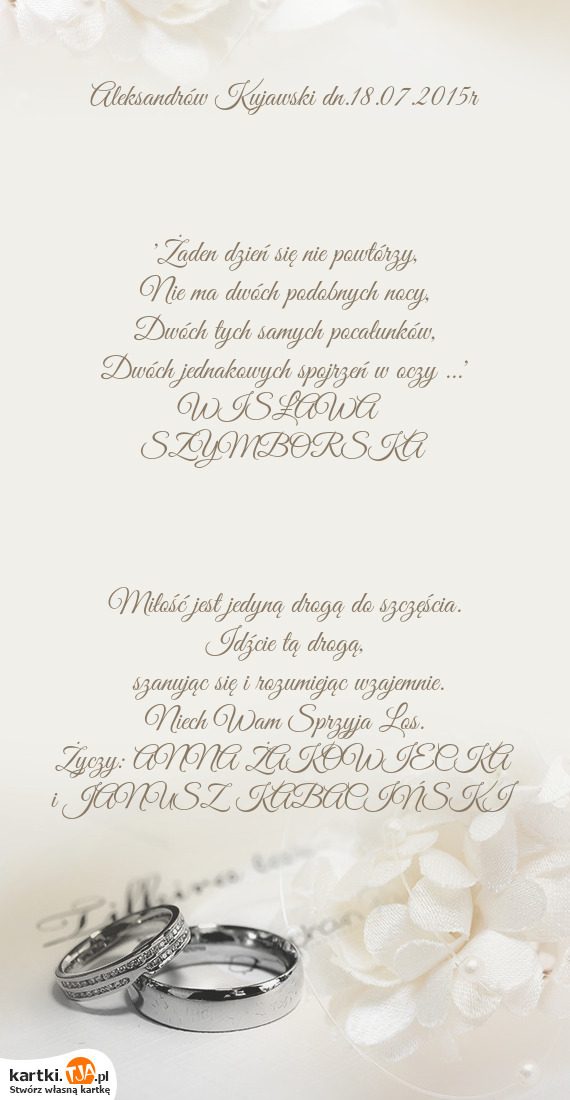 Aleksandrów Kujawski dn.18.07.2015r
'Żaden dzień się nie powtórzy,
Nie ma dwóch podobnych nocy,
Dwóch tych samych pocałunków,
Dwóch jednakowych spojrzeń w oczy ...'
WISŁAWA
SZYMBORSKA
Miłość jest jedyną drogą do szczęścia.
Idźcie tą drogą,
szanując się i rozumiejąc wzajemnie.
Niech Wam Sprzyja Los.
Życzy: ANNA ŻAKOWIECKA
i JANUSZ KABACIŃSKI
kartki.TJA.pl
Stwórz własną kartkę